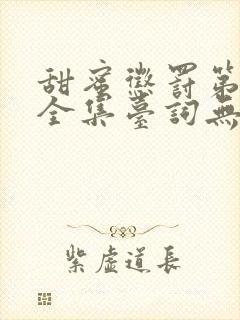 甜蜜懲罰第
全集臺詞無
紫虛道長